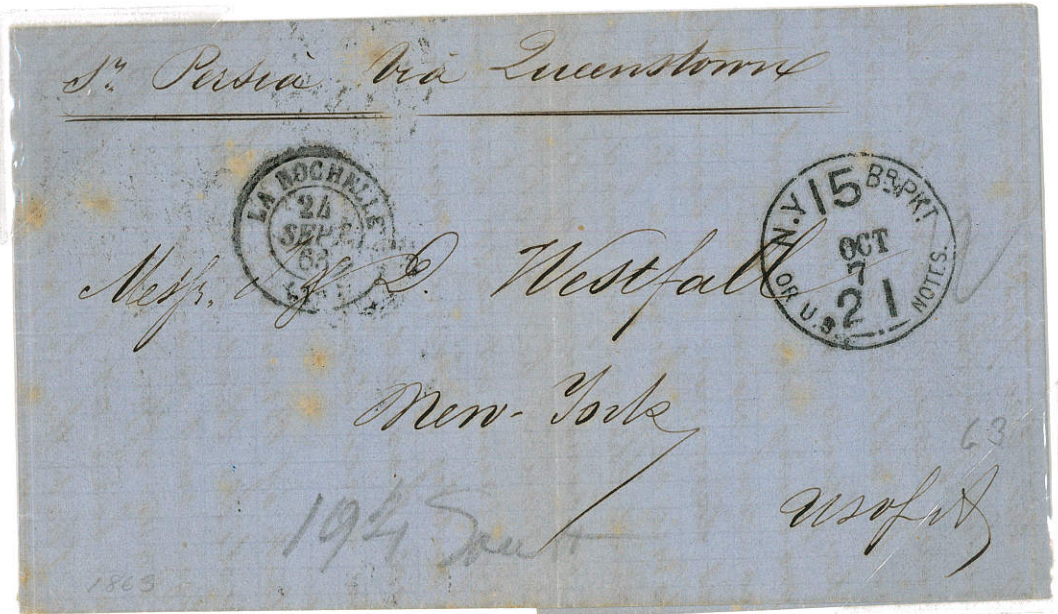 Sr. Persia Via Queenstown
LA ROCHELLE
24
SEPT.
63
N.Y 15 BR. PKT
OCT
7
21
OR U.S. NOTES.
Messrs. D. Westfall
New-York
63
U S of A
1863